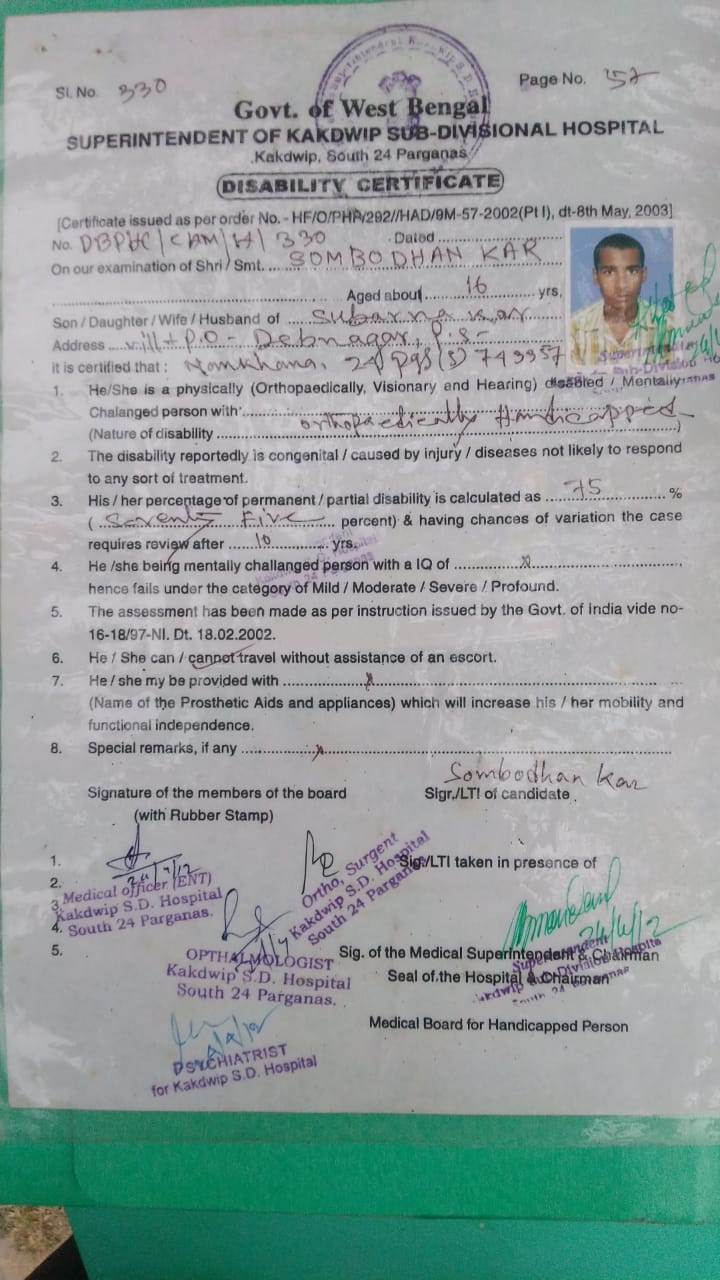 Sl. No. 330
Page No. 57
Govt. of West Bengal
SUPERINTENDENT OF KAKDWIP SUB-DIVISIONAL HOSPITAL
Kakdwip, South 24 Parganas
DISABILITY CERTIFICATE
[Certificate issued as per order No. - HF/O/PHP/292//HAD/9M-57-2002(Pt I), dt-8th May, 2003]
No. DBPHC/CHM/H/330 Dated
On our examination of Shri / Smt. SOMBODHAN KAR
Aged about 16 yrs,
Son / Daughter / Wife / Husband of Subarna Kar
Address Vill + P.O - Debnagar, P.S -
it is certified that : Namkhana, 24 Pgs (S) 743357
1. He/She is a physically (Orthopaedically, Visionary and Hearing) disabled / Mentally
Chalanged person with
orthopaedically Handicapped
(Nature of disability )
2. The disability reportedly is congental / caused by injury / diseases not likely to respond
to any sort of treatment.
3. His / her percentage of permanent / partial disability is calculated as 75 %
( Seventy Five percent) & having chances of variation the case
requires review after 10 yrs.
4. He /she being mentally challanged person with a IQ of x
hence fails under the category of Mild / Moderate / Severe / Profound.
5. The assessment has been made as per instruction issued by the Govt. of India vide no-
16-18/97-NI. Dt. 18.02.2002.
6. He / She can / cannot travel without assistance of an escort.
7. He / she my be provided with x
(Name of the Prosthetic Aids and appliances) which will increase his / her mobility and
functional independence.
8. Special remarks, if any x
Sombodhan Kar
Signature of the members of the board
Sigr,/LTI of candidate
(with Rubber Stamp)
1.
Sig./LTI taken in presence of
2.
3.
Medical officer (ENT)
Kakdwip S.D. Hospital
South 24 Parganas.
4.
Ortho, Surgent
Kakdwip S.D. Hospital
South 24 Parganas
24/4/12
5.
Sig. of the Medical Superintendent & Chairman
OPTHALMOLOGIST
Kakdwip S.D. Hospital
South 24 Parganas.
Seal of.the Hospital & Chairman
Medical Board for Handicapped Person
PSYCHIATRIST
for Kakdwip S.D. Hospital